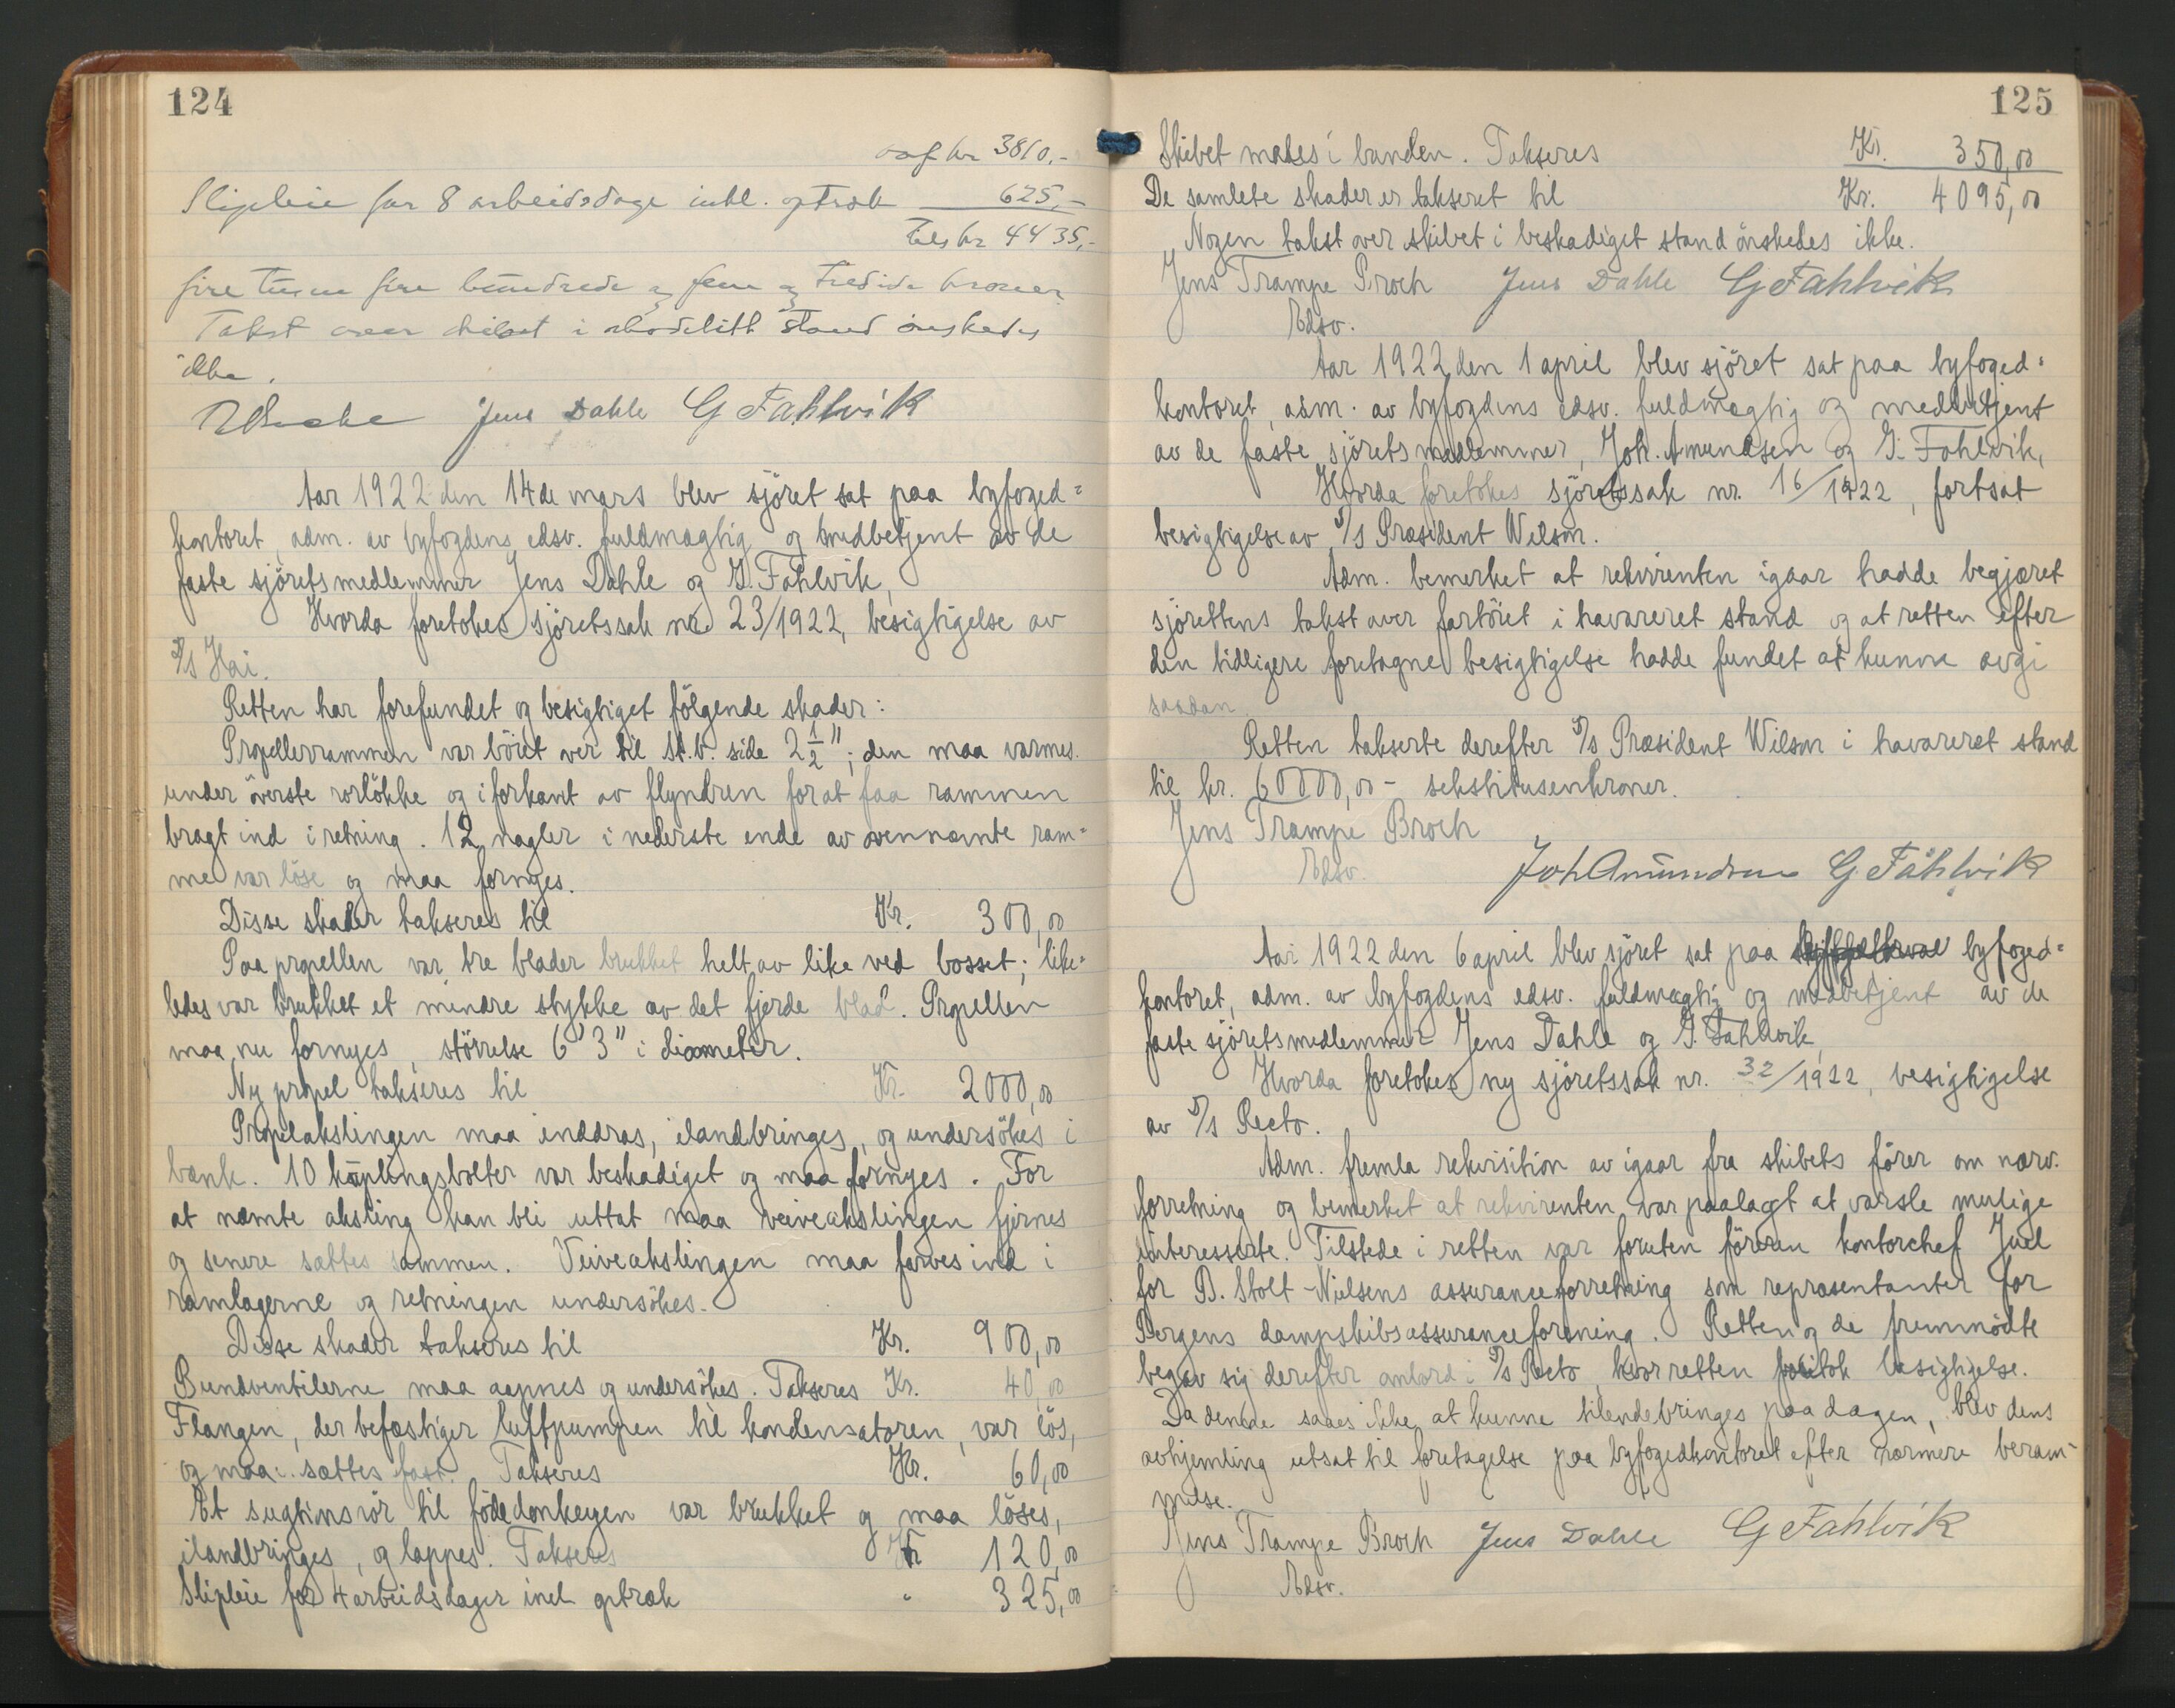 124
kr 3810,-
Slipleie for 8 arbeidsdage inkl. optræk 625,-
Tils kr 4435,-
fire tusen fire hundrede og fem og tredive kroner.
Takst over skibet i skadelidt stand ønskedes
ikke.
Jens Dahle G Fahlvik
Aar 1922 den 14de mars blev sjöret sat paa byfoged=
kontoret, adm. av byfogdens edsv. fuldmægtig og medbetjent av de
faste sjöretsmedlemmer Jens Dahle og G. Fahlvik,
Hvorda foretokes sjöretssak nr 23/1922, besigtigelse av
S/S Hai.
Retten har forefundet og besigtiget fölgende skader:
Propellerrammen var böiet over til st.b. side 2 1/2"; den maa varmes
under överste rorlökke og i forkant av flyndren for at faa rammen
bragt ind i retning. 12 nagler i nederste ende av ovennævnte ram=
me var löse og maa fornyes.
Disse skader takseres til Kr. 300,00
Paa propellen var tre blader brukket helt av like ved bosset; like=
ledes var brukket et mindre stykke av det fjerde blad. Propellen
maa nu fornyes, störrelse 6' 3" i diameter.
Ny propel takseres til Kr. 2000,00
Propelakslingen maa inddras, ilandbringes, og undersökes i
bænk. 10 koplingsbolter var beskadiget og maa fornyes. For
at nævnte aksling kan bli uttat maa veiveakslingen fjernes
og senere sættes sammen. Veiveakslingen maa farves ind i
ramlagerne og retningen undersökes.
Disse skader takseres til Kr. 900,00
Bundventilerne maa aapnes og undersökes. Takseres Kr. 40,00
Flangen, der befæstiger luftpumpen til kondensatoren, var lös,
og maa sættes fast. Takseres Kr. 60,00
Et rör til födedonkeyen var brukket og maa löses,
ilandbringes, og lappes. Takseres Kr 120,00
Slipleie for 4 arbeidsdager incl. optræk " 325,00
125
Skibet males i bunden. Takseres Kr. 350,00
De samlete skader er takseret til Kr. 4095,00
Nogen takst over skibet i beskadiget stand önskedes ikke.
Jens Trampe Broch Jens Dahle G Fahlvik
Edsv.
Aar 1922 den 1 april blev sjöret sat paa byfoged=
kontoret, adm. av byfogdens edsv. fuldmægtig og medbetjent
av de faste sjöretsmedlemmer, Joh. Amundsen og G. Fahlvik,
Hvorda foretokes sjöretssak nr. 16/1922, fortsat
besigtigelse av S/S Præsident Wilson.
Adm. bemerket at rekvirenten igaar hadde begjæret
sjörettens takst over fartöiet i havareret stand og at retten efter
den tidligere foretagne besigtigelse hadde fundet at kunne avgi
saadan.
Retten takserte derefter S/S Præsident Wilson i havareret stand
til kr. 60000,00 - sekstitusenkroner.
Jens Trampe Broch
Edsv. Joh Amundsen G Fahlvik
Aar 1922 den 6 april blev sjöret sat paa byfoged=
kontoret, adm. av byfogdens edsv. fuldmægtig og medbetjent av de
faste sjöretsmedlemmer Jens Dahle og G. Fahlvik,
Hvorda foretokes ny sjöretssak nr. 32/1922, besigtigelse
av S/S Recto.
Adm. fremla rekvisition av igaar fra skibets förer om nærv.
forretning og bemerket at rekvirenten var paalagt at varsle mulige
interesserte. Tilstede i retten var foruten föreren kontorchef Juel
for B. Stolt-Nielsens assuranceforretning som repræsentanter for
Bergens dampskibsassuranceforening. Retten og de fremmödte
begav sig derefter ombord i S/S Recto, hvor retten foretok besigtigelse.
Da denne saaes ikke at kunne tilendebringes paa dagen, blev dens
avhjemling utsat til foretagelse paa byfogedkontoret efter nærmere beram-
melse.
Jens Trampe Broch Jens Dahle G Fahlvik
Edsv.